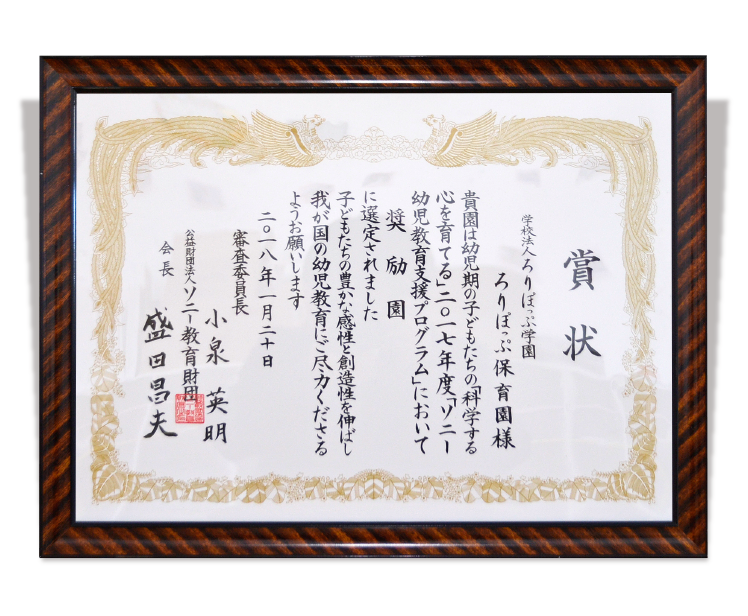 賞状
学校法人ろりぽっぷ学園
ろりぽっぷ保育園様
貴園は幼児期の子どもたちの「科学する
心を育てる」二〇一七年度「ソニー
幼児教育支援プログラム」において
奨励園
に選定されました
子どもたちの豊かな感性と創造性を伸ばし
我が国の幼児教育にご尽力くださる
ようお願いします
二〇一八年一月二十日
審査委員長 小泉 英明
公益財団法人ソニー教育財団
会長 盛田昌夫